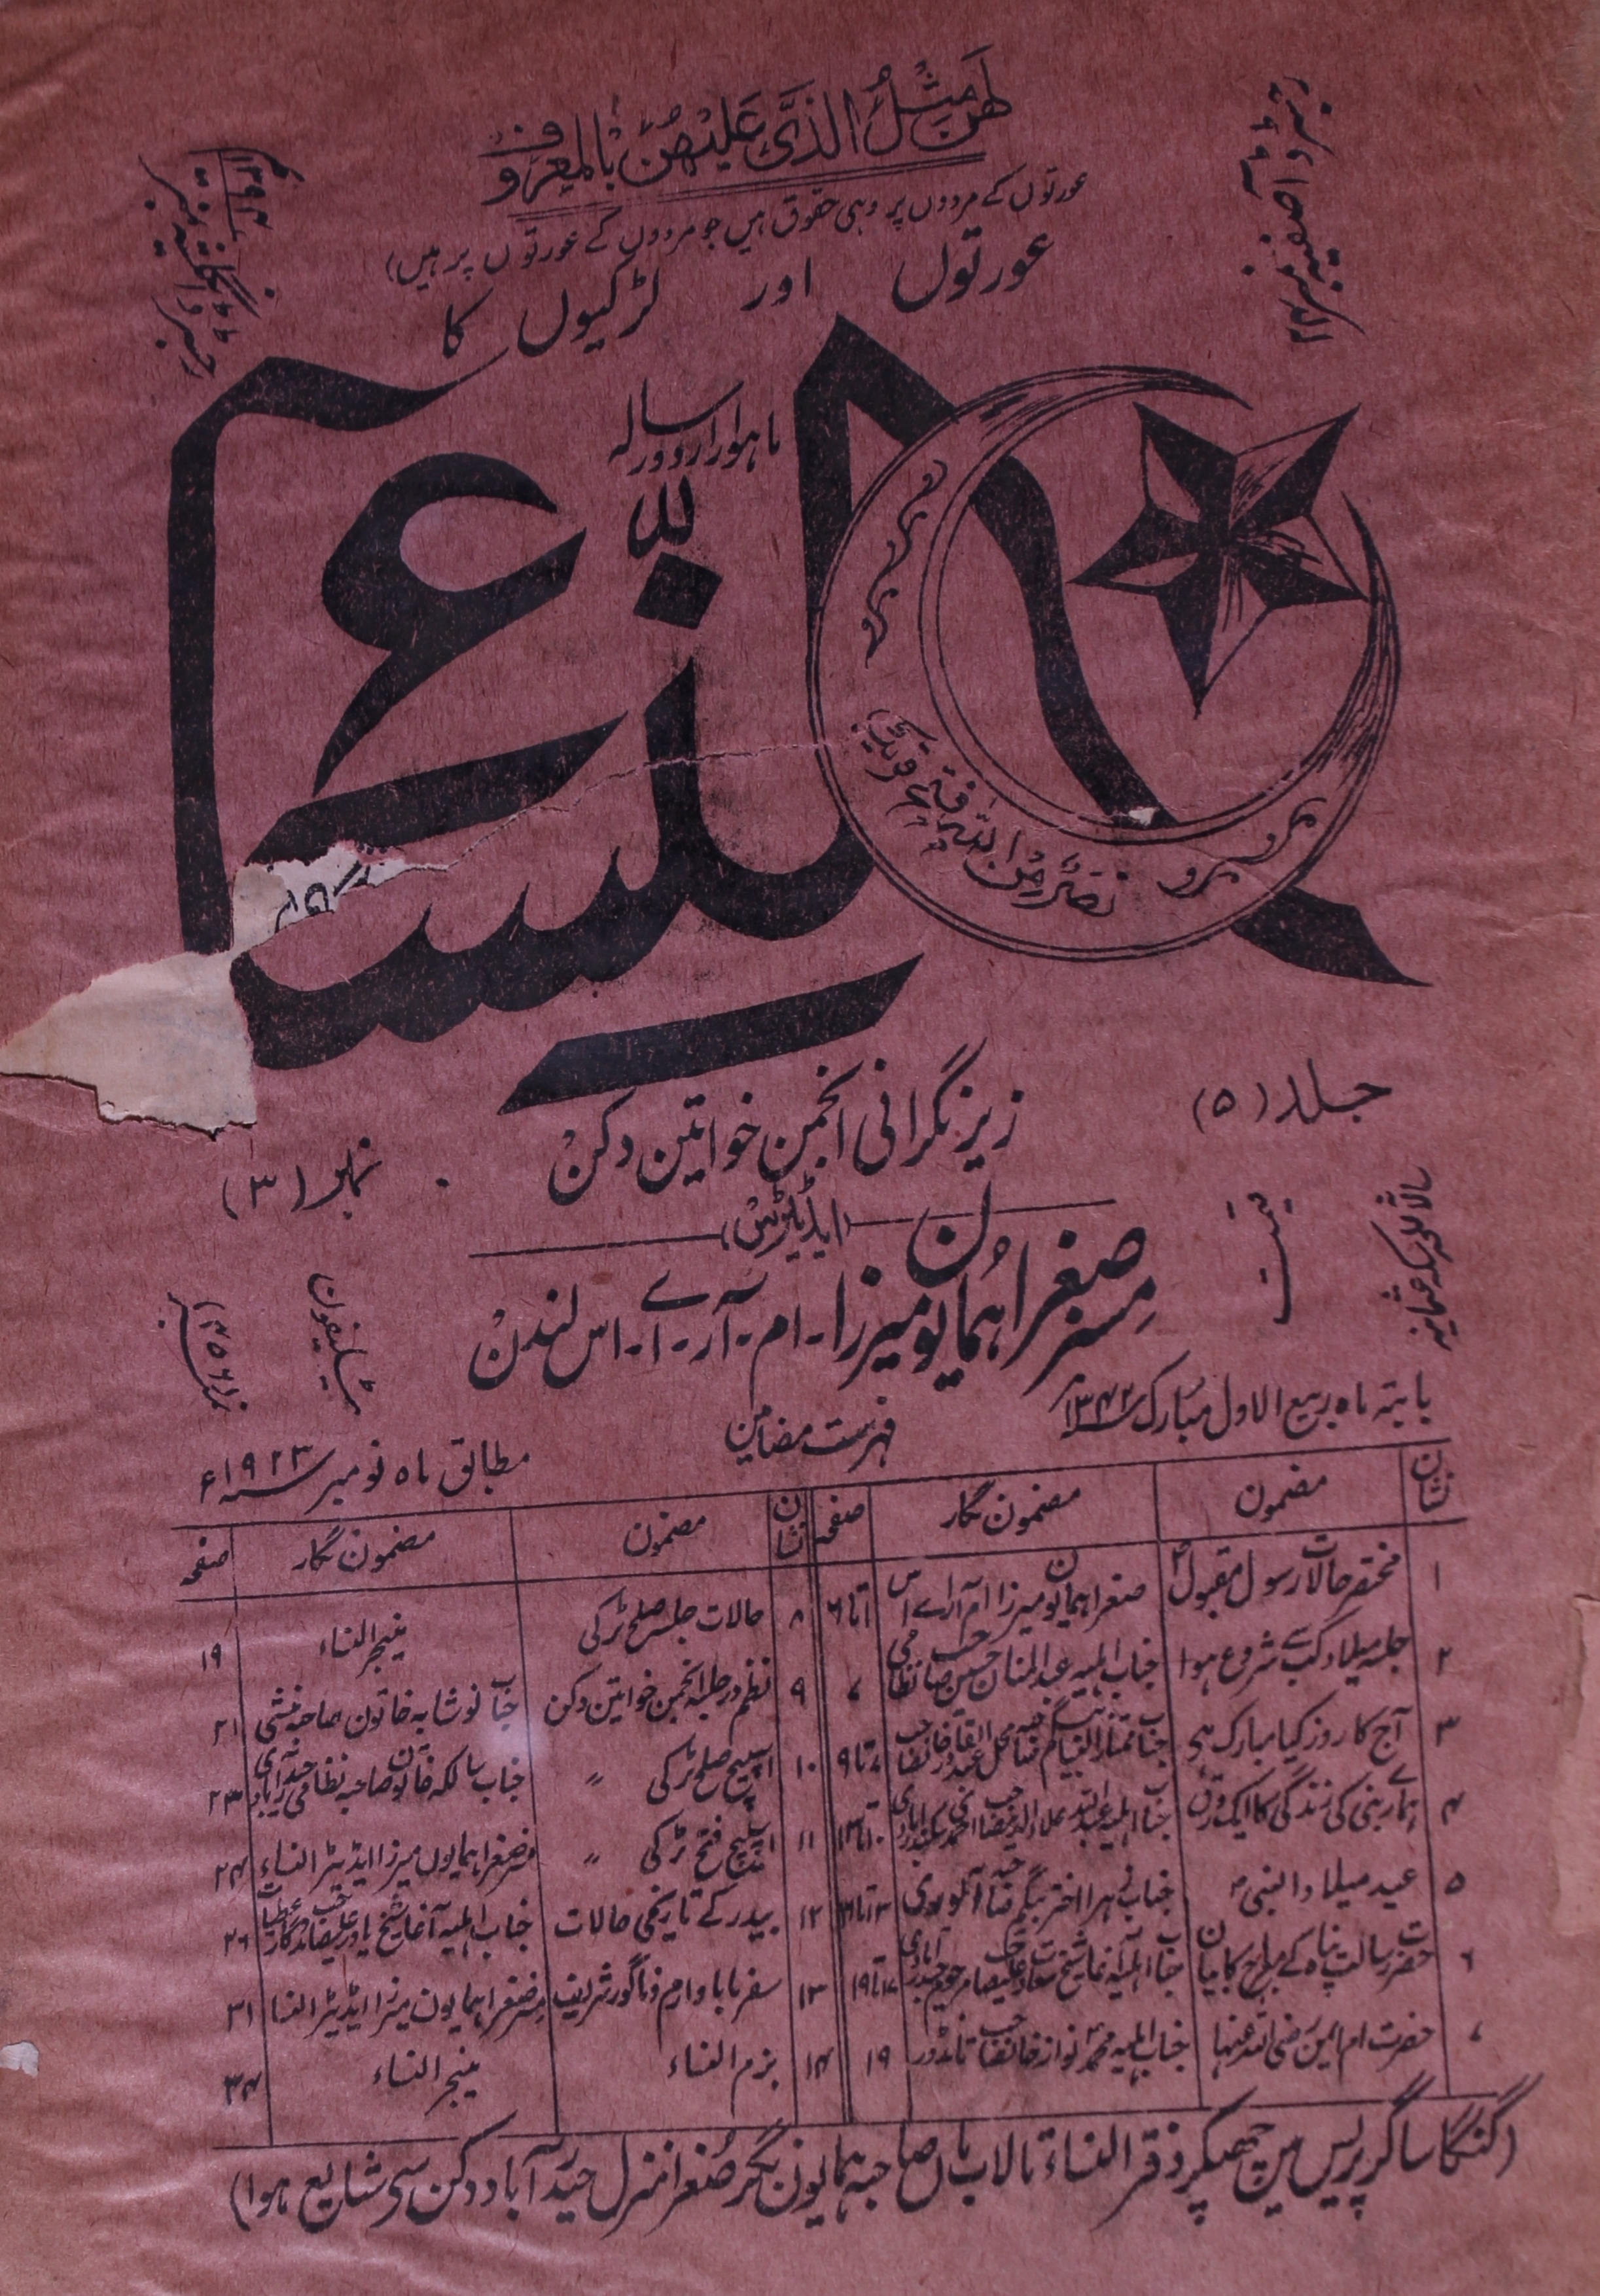 لَهُنَّ مِثْلُ الَّذِیْ عَلَیْهِنَّ بِالْمَعْرُوْفِ
عورتوں کے مردوں پر وہی حقوق ہیں جو مردوں کے عورتوں پر ہیں)
عورتوں اور لڑکیوں کا
ماہوار اردو رسالہ
النساء
نصرٌ مِّن اللہ وفتح قریب
جلد (۵)
زیر نگرانی انجمن خواتین دکن
نمبر (۳)
(ایڈیٹریس)
مسز صغرا ہمایون میرزا۔ ام۔ آر۔ اے۔ اس لندن
قیمت
ٹیلیفون
بابتہ ماہ ربیع الاول مبارک سنہ ۱۳۴۲
فہرست مضامین
مطابق ماہ نومبر سنہ ۱۹۲۳ء
نشان مضمون مضمون نگار صفحہ نشان مضمون مضمون نگار صفحہ
۱ مختصر حالات رسول مقبولؐ صغرا ہمایون میرزا ام آر اے اس ۱تا۶ ۸ حالات جلسہ صلح ٹرکی مینیجر النساء ۱۹
۲ جلسہ میلاد کب سے شروع ہوا جناب اہلیہ عبدالمنان حسین صاحب نظامی ۷ ۹ نظم در جلسہ انجمن خواتین دکن جناب نوشابہ خاتون صاحبہ منشی ۲۱
۳ آج کا روز کیا مبارک ہے ۱۰ اسپیچ صلح ٹرکی " جناب سالکہ خاتون صاحبہ نظامی حیدرآبادی ۲۳
۴ ہمارے نبی کی زندگی کا ایک ورق ۱۱ اسپیچ فتح ٹرکی " مسز صغرا ہمایوں میرزا ایڈیٹر النساء ۲۴
۵ عید میلاد النبی جناب زہرا اختر بیگم صاحبہ ۱۲ بیدر کے تاریخی حالات جناب اہلیہ آغا شیخ یاور علی صاحب ۲۶
۶ حضرت رسالت پناہ کے مزاح کا بیان ۱۷تا۱۹ ۱۳ سفر نامہ باوارم و ناگور شریف مسز صغرا ہمایون میرزا ایڈیٹر النسا ۳۱
۷ حضرت ام ایمن رضی اللہ عنہا جناب اہلیہ محمد نواز خانصاحب تانڈور ۱۹ ۱۴ بزم النساء مینیجر النساء ۳۴
(گنگا ساگر پریس مین چھپکر دفتر النساء تالاب ماں صاحبہ ہمایون نگر صغرا منزل حیدرآباد دکن سی شایع ہوا)